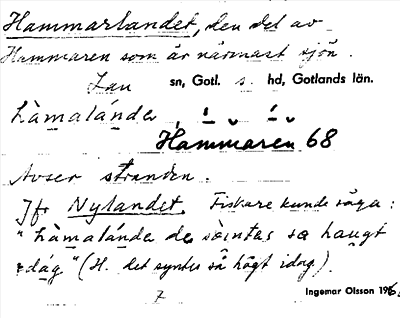 Hammarlandet, den del av
Hammaren som är närmast sjön.
Lau sn, Gotl. s. hd, Gotlands län.
hàmalánde
Hammaren 68
Avser stranden.
Jfr Nylandet. Fiskare kunde säga:
"hàmalánde de sàintas sø haugt
idág" (H. det syntes så högt idag).
7 Ingemar Olsson 196